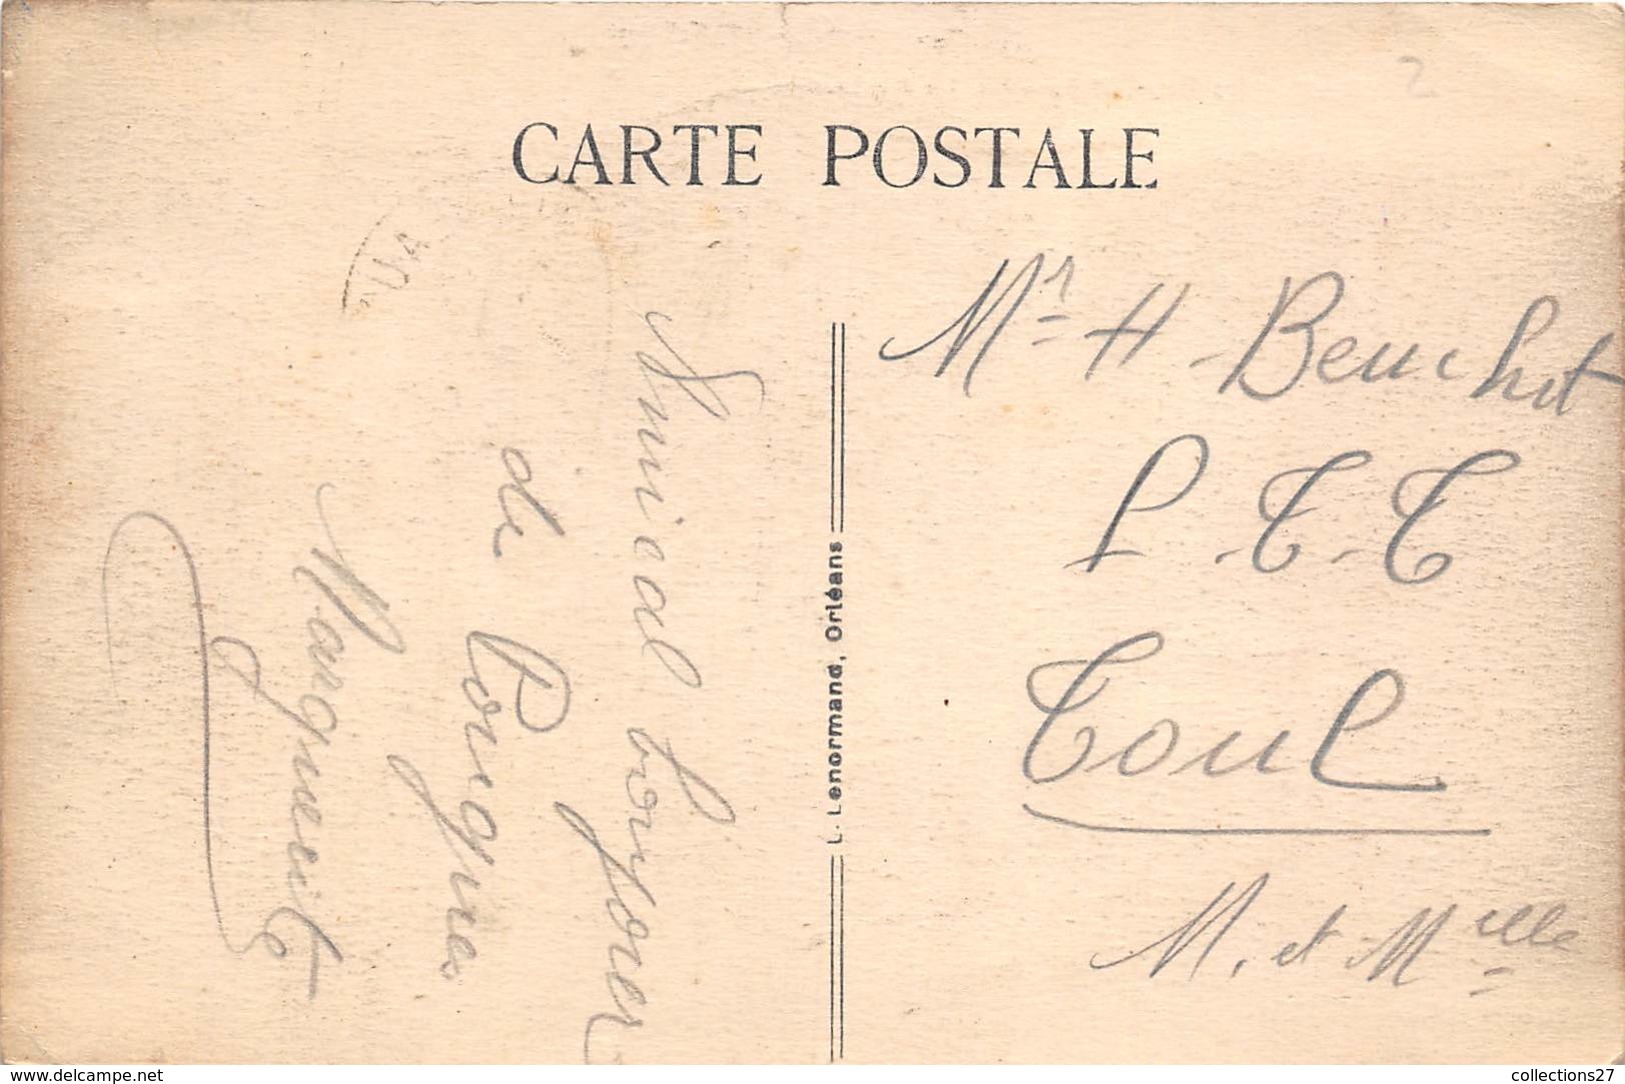 CARTE POSTALE
Amical bonjour
de Pougues
Marguerite
L. Lenormand, Orléans
Mr H. Beuchot
P.T.T
Toul
M. et Meille
www.delcampe.net
collections27